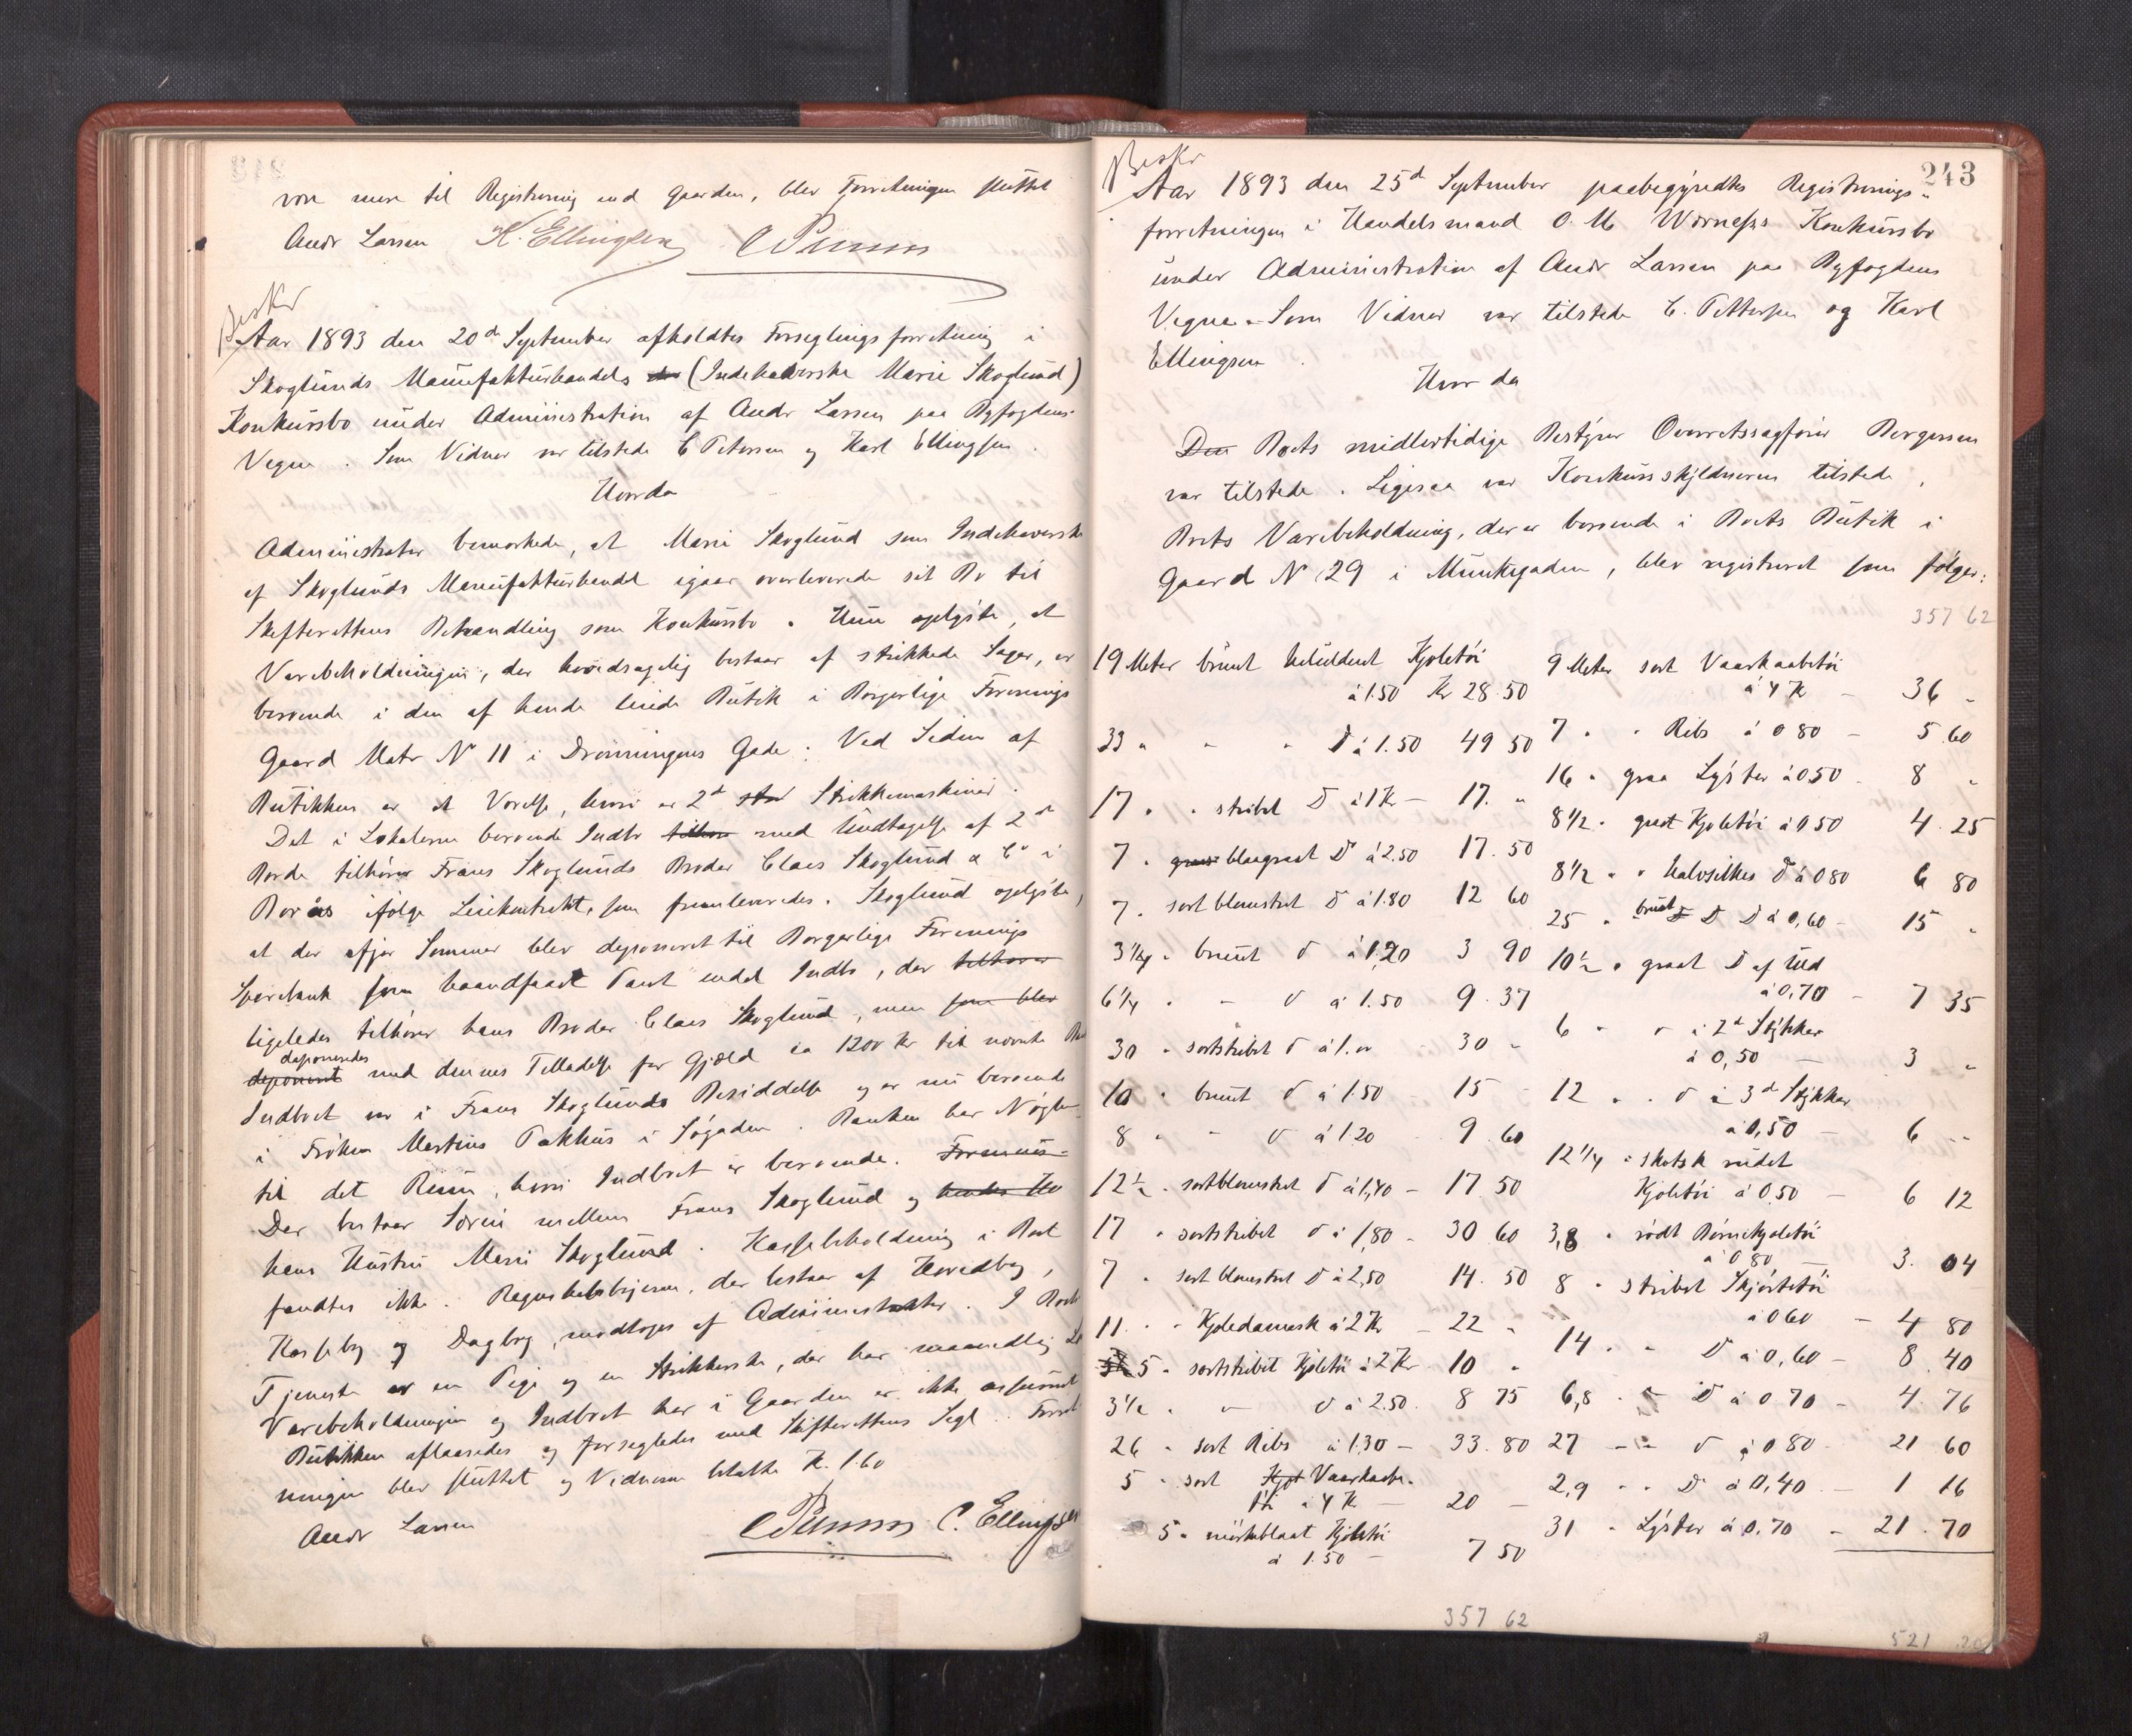 være mere til Registrering end Gaarden, blev Forretningen sluttet
Andr Larsen K. Ellingsen
Beskr
Aar 1893 den 20de September afholdtes Forseglingsforretning i
Skoglunds Manufakturhandels (Indehaverske Marie Skoglund)
Konkursbo under Administration af Andr Larsen paa Byfogdens
Vegne. Som Vidner var tilstede C Petersen og Karl Ellingsen.
Hvorda
Administrator bemærkede, at Marie Skoglund som Indehaverske
af Skoglunds Manufakturhandel igaar overleverede sit Bo til
Skifterettens Behandling som Konkursbo. Hun oplyste, at
Varebeholdningen, der hovedsagelig bestaar af strikkede Sager, er
beroende i den af hende leiede Butik i Borgerlige Forenings
Gaard Matr N 11 i Dronningens Gade. Ved Siden af
Butikken er et Værelse, hvori er 2de Strikkemaskiner.
Det i Lokalerne beroende Indbo tilhører med Undtagelse af 2de
Borde tilhører Frans Skoglunds Broder Claes Skoglund & Co i
Borås ifølge Leiekontrakt, som fremleveredes. Skoglund oplyste,
at der ifjor Sommer blev deponeret til Borgerlige Forenings
Sparebank som haandfaaet Pant endel Indbo, der tilhører
ligeledes tilhører hans Broder Claes Skoglund, men som blev
deponeredes
deponeret med dennes Tilladelse for Gjæld ca 1200 Kr til nævnte
Indboet var i Frans Skoglunds Besiddelse og er nu beroende
i Frøken Martins Pakhus i Søgaden. Banken har Nøglen
til det Rum, hvori Indboet er beroende.
Der bestaar Særeie mellem Frans Skoglund og
hans Hustru Marie Skoglund. Kassebeholdning i Boet
fandtes ikke. Regnskabsbøgerne, der bestaar af Hovedbog,
Kassebog og Dagbog, modtoges af Administrator. I Boets
Tjeneste er en Pige og en Strikkerske, der har maanedlig
Varebeholdningen og Indboet her i Gaarden er ikke assureret
Butikken aflaasedes og forsegledes med Skifterettens Segl. Forret
ningen blev sluttet og Vidnerne betalte K. 1.60
Andr Larsen C. Ellingsen
243
Beskr
Aar 1893 den 25de September paabegyndtes Registrerings-
forretningen i Handelsmand O. M Wörness Konkursbo
under Administration af Andr Larsen paa Byfogdens
Vegne. Som Vidner var tilstede C. Pettersen og Karl
Ellingsen.
Hvor da
Den Boets midlertidige Bestyrer Overretssagfører Børgesen
var tilstede. Ligesaa var Konkursskyldneren tilstede.
Boets Varebeholdning, der er beroende i Boets Butik i
Gaard N 29 i Munkegaden, blev registreret som følger:
357 62
19 Meter brunt heluldent Kjoletøi
à 1.50 Kr 28.50
33 " - " D à 1.50 49 50
17 " " stribet D à 1 Kr - 17. "
7 " graat blaagraat D à 2.50 17.50
7 " sort blomstret D à 1.80 12 60
3 1/4 " brunt D à 1,20 3 90
6 1/4 " - D à 1.50 9.37
30 " sortstribet D à 1.00 30 "
10 " brunt D à 1.50 15 -
8 " - D à 1.20 9.60
12 1/2 " sortblomstret D à 1,40 - 17 50
17 " sortstribet D à 1,80 - 30 60
7 " sort blomstret D à 2,50 14.50
11 " " Kjoledamask à 2 Kr - 22 "
5 " sortstribet Kjoletøi à 2 Kr. 10 "
3 1/2 " - D à 2.50. 8 75
26 " sort Ribs à 1.30 - 33.80
5 " sort Kjol Vaarkaabe-
tøi à 4 K - 20 -
5 " mørkeblaat Kjoletøi
à 1.50 - 7 50
357 62
9 Meter sort Vaarkaabetøi
à 4 K - 36 -
7 " " Ribs à 0 80 - 5.60
16 " graa Lyster à 0.50 - 8 "
8 1/2 " graat Kjoletøi à 0 50 4.25
8 1/2 " " Halvsilkes D à 0 80 6 80
25 " brunt D D à 0,60 - 15 "
10 1/2 " graat D af Uld
à 0,70 - 7 35
6 " " i 2de Stykker
à 0,50 - 3 "
12 " " D i 3de Stykker
à 0,50 - 6 "
12 1/4 " skotsk rudet
Kjoletøi à 0.50 - 6 12
3,8 " rødt Børnekjoletøi
à 0 80 - 3.04
8 " stribet Skjørtetøi
à 0 60 - 4 80
14 " " D à 0,60 - 8.40
6,8 " " D à 0 70 - 4.76
27 - " D à 0 80 - 21 60
2,9 " " D à 0,40 - 1 16
31 " Lyster à 0.70 - 21.70
521 20